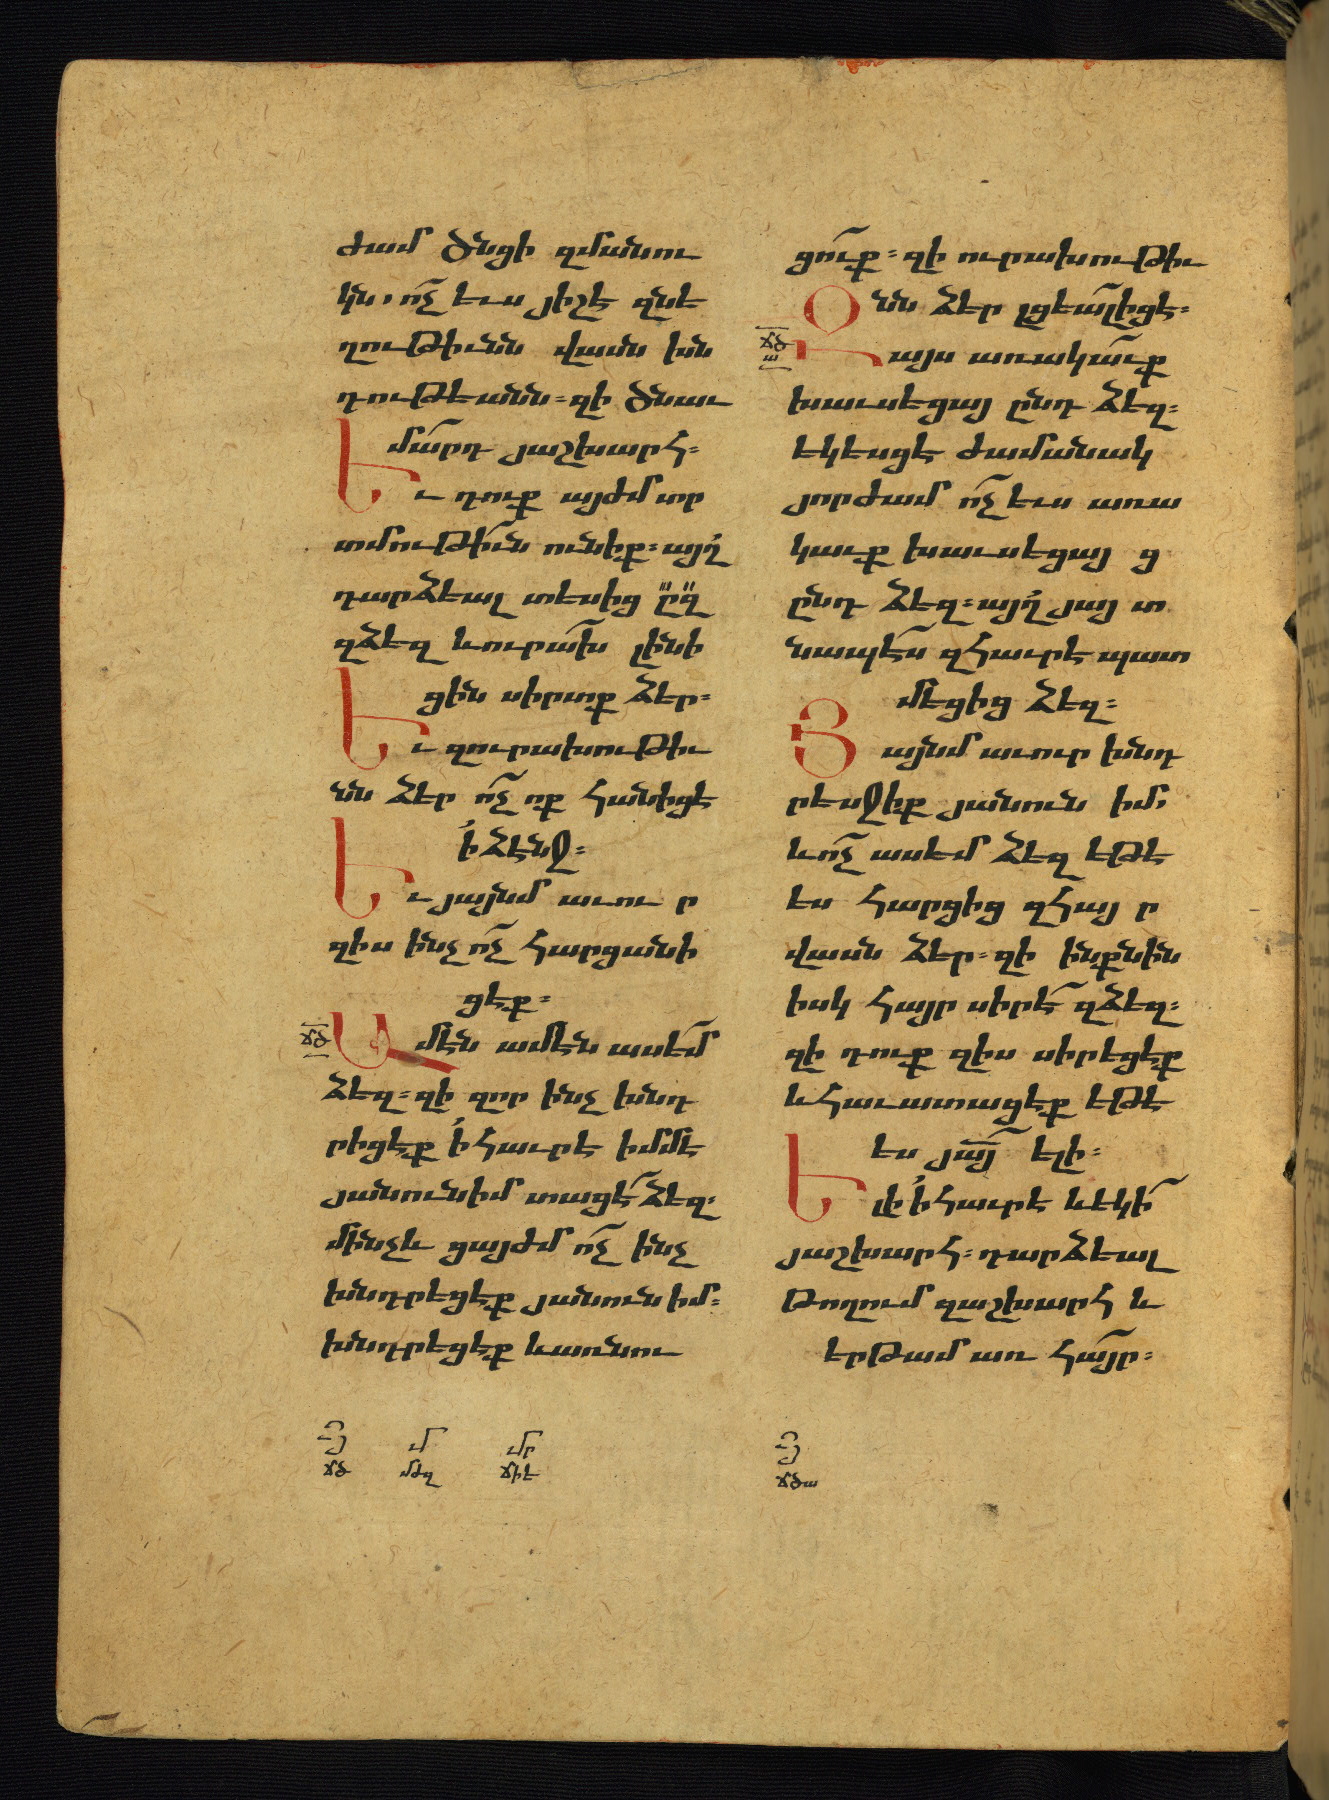 ժամ ծնցի զմանու
կն, ո՛չ ևս յիշէ զնե
ղութիւնն վասն խն
դութեանն։ զի ծնաւ
մա՛րդ յաշխարհ։
Եւ դուք այժմ տր
տմութի՛ւն ունիք։ այղ՛
դարձեալ տեսից ը՛զ
զձեզ և ուրա՛խ լինի
ցին սիրտք ձեր։
Եւ զուրախութիւ
նն ձեր ո՛չ ոք հանիցէ
ի՛ ձէնջ։
Եւ յայնմ աւու ր
զիս ինչ ո՛չ հարցանի
ցէք։
ՃԾ
Ամէն ամէն ասե՛մ
ձեզ։ զի զոր ինչ խնդ
րիցէք ի՛ հաւրէ իմմէ
յանուն իմ տացէ՛ ձեզ։
մինչև ցայժմ ո՛չ ինչ
խնդրեցէք յանուն իմ։
խնդրեցէք և առնու
ցո՛ւք։ զի ուրախութիւ
նն ձեր լցեա՛լ իցէ։
ՃԾԱ
Զայս առակա՛ւք
խաւսեցայ ընդ ձեզ։
եկեսցէ ժամանակ
յորժամ ո՛չ ևս առա
կաւք խաւսեցայ ց
ընդ ձեզ։ այղ՛ յայ տ
նապէ՛ս զհաւրէ պատ
մեցից ձեզ։
Յայնմ աւուր խնդ
րեսջիք յանուն իմ,
և ո՛չ ասեմ ձեզ եթէ
ես հարցից զհայ ր
վասն ձեր։ զի ինքնին
իսկ հայր սիրէ՛ զձեզ։
զի դուք զիս սիրեցէք
և հաւատացէք եթէ
ես յայ՛ ելի։
Ելի՛ ի՛ հաւրէ և եկի՛
յաշխարհ։ դարձեալ
թողում զաշխարհ և
երթամ առ հա՛յր։
Յ Մ ՄՐ
ՃԾ ՄԺԶ ՃԻԷ
Յ
ՃԾԱ